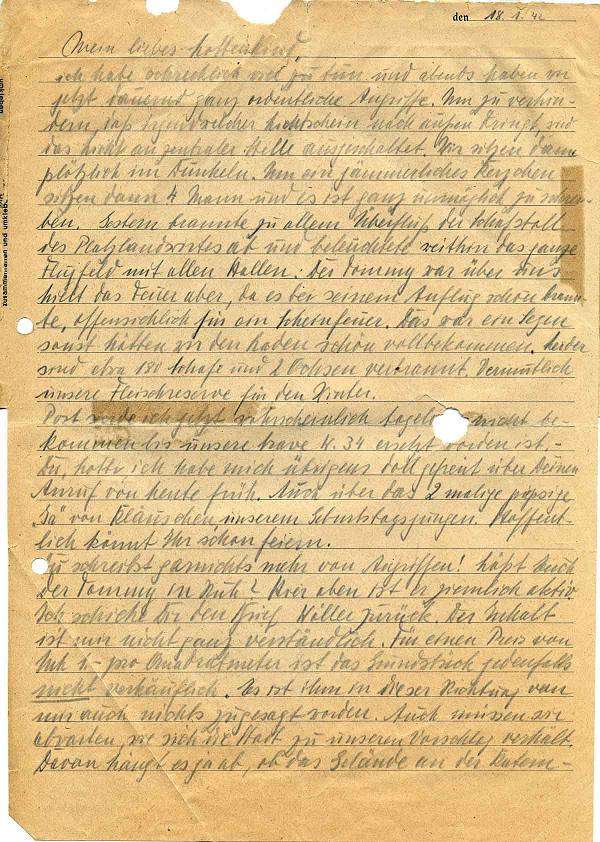 den 18.1.42
Mein liebes Hottenkind,
ich habe schrecklich viel zu tun und abends haben wir
jetzt dauernd ganz ordentliche Angriffe. Um zu verhin-
dern, daß irgendwelcher Lichtschein nach außen dringt, wird
das Licht an zentraler Stelle ausgeschaltet. Wir sitzen dann
plötzlich im Dunkeln. Um ein jämmerliches Kerzchen
sitzen dann 4 Mann und es ist ganz unmöglich zu schrei-
ben. Gestern brannte zu allem Überfluß der Schafstall
des Platzlandwirtes ab und beleuchtete weithin das ganze
Flugfeld mit allen Hallen. Der Tommy war über uns
hielt das Feuer aber, da es bei seinem Anflug schon brann-
te, offensichtlich für ein Scheinfeuer. Das war ein Segen
sonst hätten wir den Laden schön vollbekommen. Leider
sind etwa 180 Schafe und 2 Ochsen verbrannt. Vermutlich
unsere Fleischreserve für den Winter.
Post werde ich jetzt wahrscheinlich tagelang nicht be-
kommen bis unsere brave W. 34 ersetzt worden ist. -
Du, Hotte ich habe mich übrigens doll gefreut über Deinen
Anruf von heute früh. Auch über das 2 malige piepsige
"Ja" von Kläuschen unserem Geburtstagsjungen. Hoffent-
lich könnt Ihr schön feiern.
Du schreibst garnichts mehr von Angriffen! Läßt Euch
der Tommy in Ruh? Hier oben ist er ziemlich aktiv.
Ich schicke Dir den Brief Möller zurück. Der Inhalt
ist mir nicht ganz verständlich. Für einen Preis von
Mk 1,- pro Quadratmeter ist das Grundstück jedenfalls
nicht verkäuflich. Es ist ihm in dieser Richtung von
mir auch nichts zugesagt worden. Auch müssen wir
abwarten, wie sich die Stadt zu unseren Vorschlag verhält.
Davon hängt es ja ab, ob das Gelände an der
zusammenleimen und umkleben
umkleben